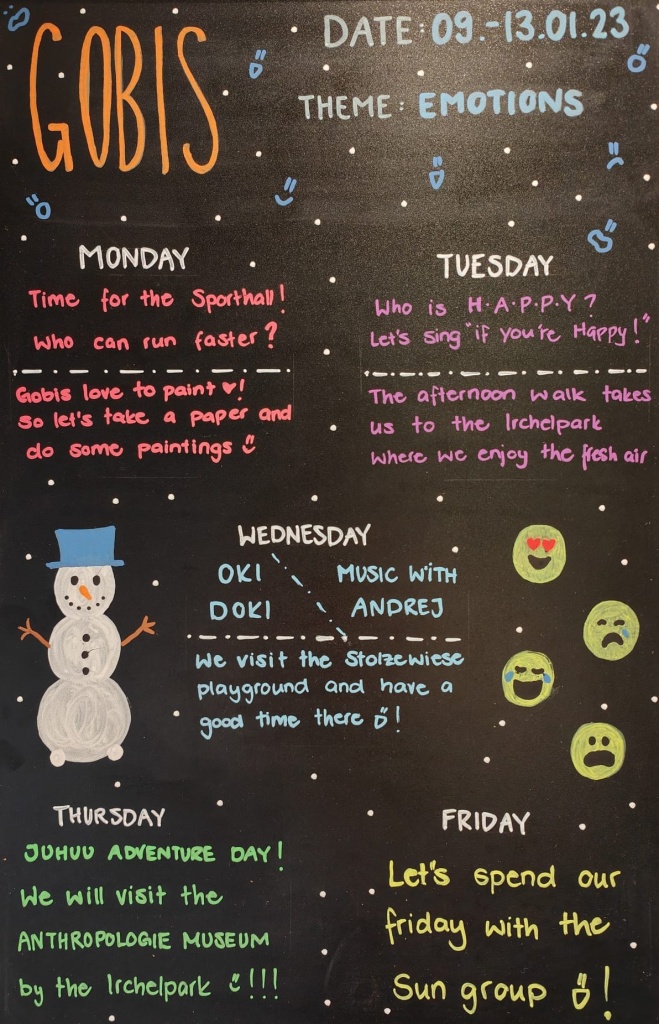 GOBIS
DATE: 09.-13.01.23
THEME: EMOTIONS
MONDAY
Time for the Sporthall!
Who can run faster?
Gobis love to paint ♥!
So let's take a paper and
do some paintings
TUESDAY
Who is H.A.P.P.Y?
Let's sing "if you're Happy!"
The afternoon walk takes
us to the Irchelpark
where we enjoy the fresh air
WEDNESDAY
OKI
DOKI
MUSIC WITH
ANDREJ
We visit the Stolzewiese
playground and have a
good time there !
THURSDAY
JUHUU ADVENTURE DAY!
We will visit the
ANTHROPOLOGIE MUSEUM
by the Irchelpark !!!
FRIDAY
Let's spend our
friday with the
Sun group !